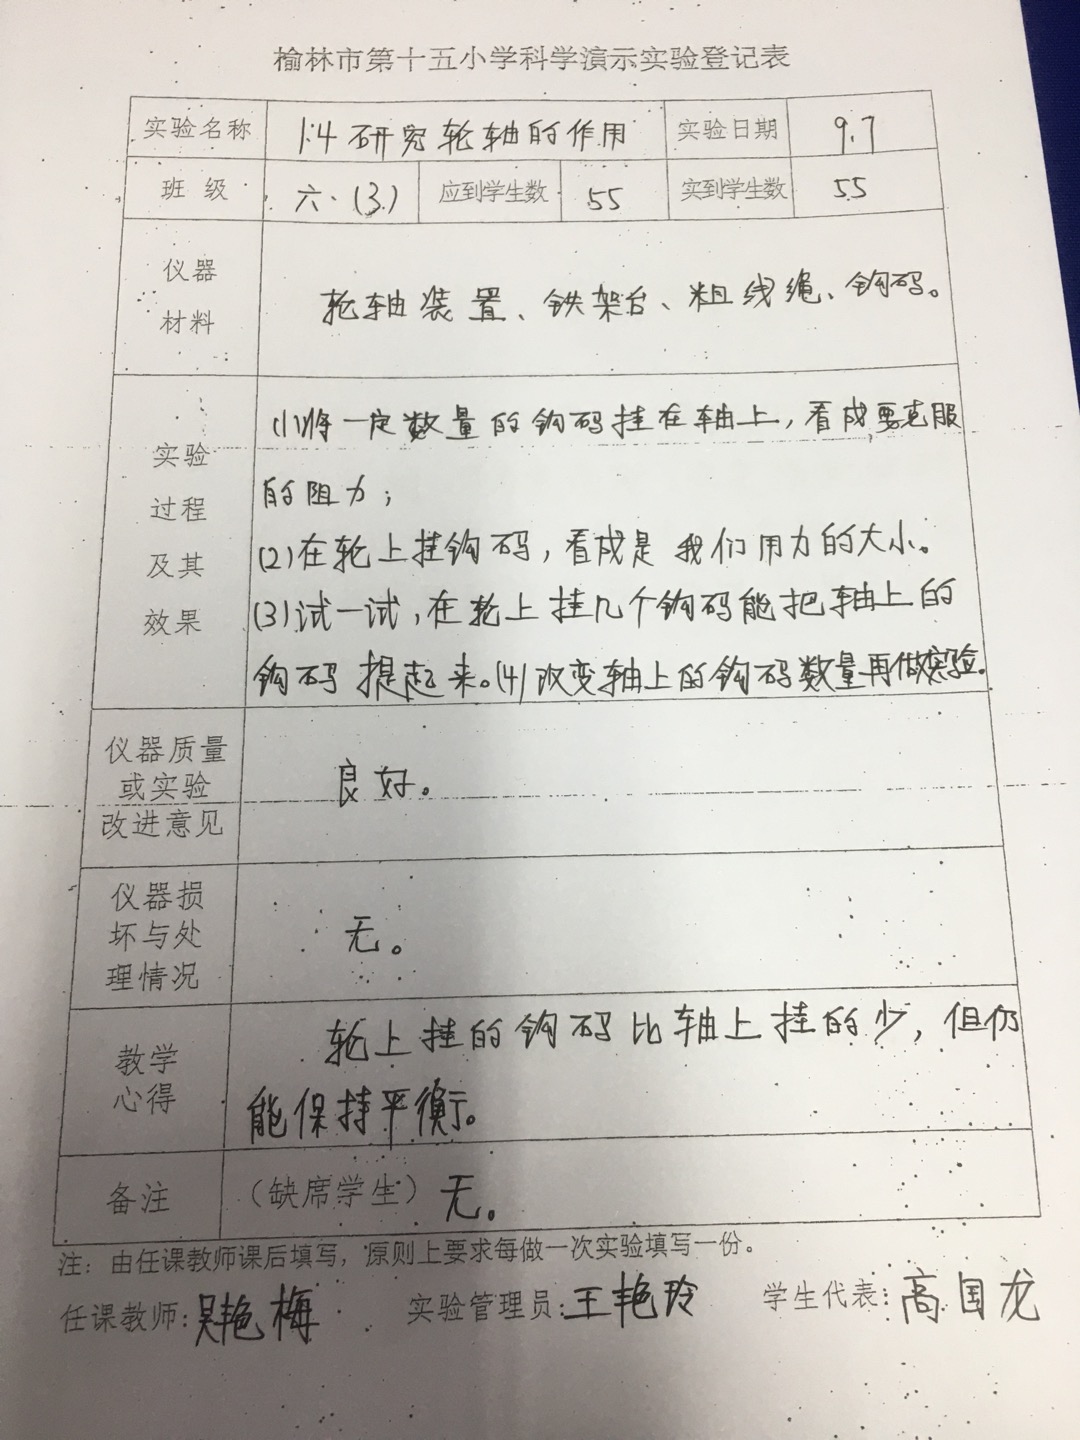 榆林市第十五小学科学演示实验登记表
实验名称 1.4 研究轮轴的作用 实验日期 9.7
班 级 六.(3.) 应到学生数 55 实到学生数 55
仪器
材料
轮轴装置、铁架台、粗线绳、钩码。
实验
过程
及其
效果
(1)将一定数量的钩码挂在轴上,看成要克服
的阻力;
(2)在轮上挂钩码,看成是我们用力的大小。
(3)试一试,在轮上挂几个钩码能把轴上的
钩码提起来。(4)改变轴上的钩码数量再做实验。
仪器质量
或实验
改进意见
良好。
仪器损
坏与处
理情况
无。
教学
心得
轮上挂的钩码比轴上挂的少,但仍
能保持平衡。
备注 (缺席学生) 无。
注:由任课教师课后填写,原则上要求每做一次实验填写一份。
任课教师:吴艳梅 实验管理员:王艳玲 学生代表:高国龙